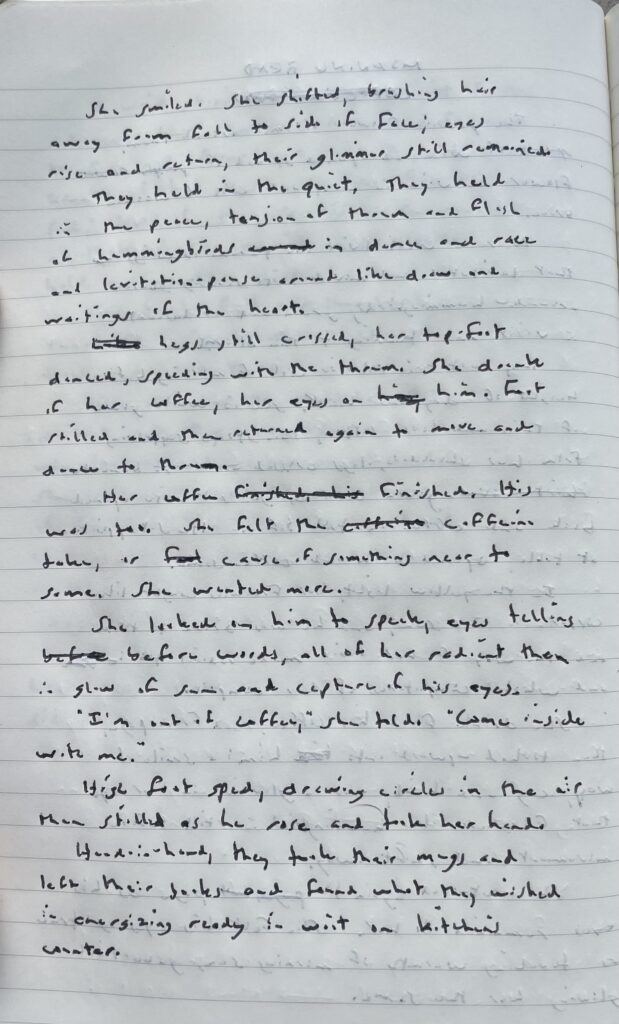 She smiled. She shifted, brushing hair
away from fall to side of face; eyes
rise and return, their glimmer still remained.
They held in the quiet, They held
in the peace, tension of thrum and flush
of hummingbirds in dance and race
and levitation-pause around like draw and
waitings of the heart.
legs still crossed, her top-foot
danced, speeding with the thrum. She drank
of her coffee, her eyes on him. Foot
stilled and then returned again to move and
dance to thrum.
Her coffee finished. His
was too. She felt the caffeine
take, or cause of something near to
same. She wanted more.
She looked on him to speak, eyes telling
before words, all of her radiant then
in glow of sun and capture of his eyes.
"I'm out of coffee," she told. "Come inside
with me."
High foot sped, drawing circles in the air
then stilled as he rose and took her hand.
Hand-in-hand, they took their mugs and
left their books and found what they wished
in energizing ready in wait on kitchen's
counter.